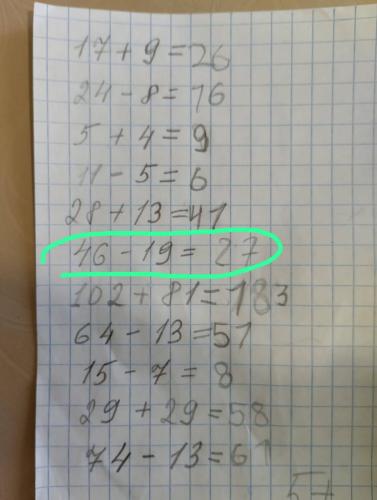 17 + 9 = 26
24 - 8 = 16
5 + 4 = 9
11 - 5 = 6
28 + 13 = 41
46 - 19 = 27
102 + 81 = 183
64 - 13 = 51
15 - 7 = 8
29 + 29 = 58
74 - 13 = 61
5+